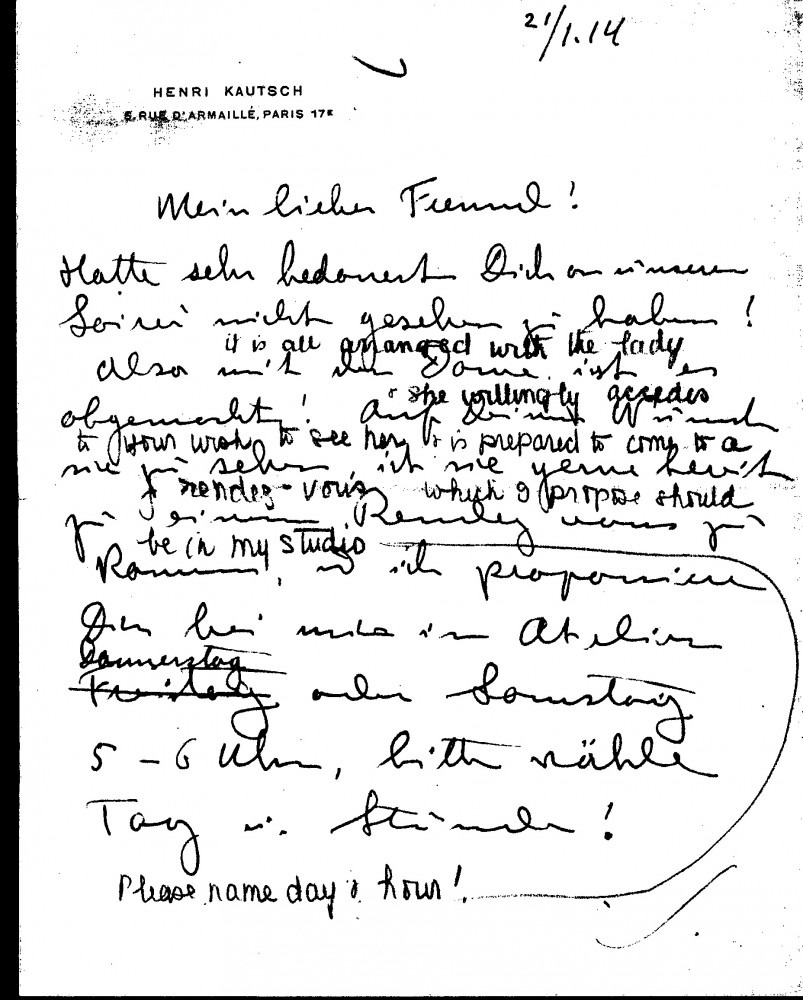 21/1.14
HENRI KAUTSCH
5, RUE D'ARMAILLÉ, PARIS 17E
Mein lieber Freund!
Hatte sehr bedauert Dich an unserer
Soirée nicht gesehen zu haben!
it is all arranged with the lady
Also mit der Dame ist es
& she willingly accedes
abgemacht! Auf Deinen Wunsch
to your wish to see her, & is prepared to come to a
sie zu sehen ist sie gerne bereit
rendez-vous which I propose should
zu einem Rendez vous zu
be in my studio
kommen, u ich proponiere
Dir bei mir im Atelier
Donnerstag
Freitag oder Samstag
5 - 6 Uhr, bitte wähle
Tag u. Stunde!
Please name day & hour!